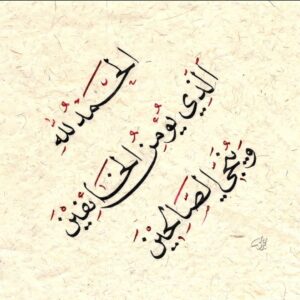 الحَمدُ لِلّٰهِ
الَّذِي يُؤمِنُ الخَائِفِينَ
وَيُنَجِّي الصَّالِحِينَ